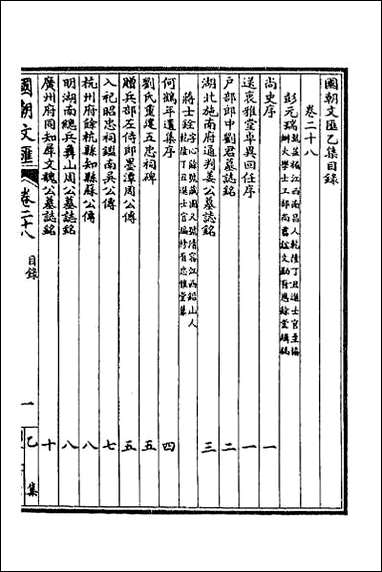 國朝文匯乙集目錄
卷二十八
彭元瑞 字芸楣江西南昌人乾隆丁丑進士官至協
辦大學士工部尚書諡文勤有恩餘堂輯稿
尚史序 一
送裘雅堂皋與回任序 一
戶部郎中劉君墓誌銘 二
湖北施南府通判姜公墓誌銘 三
蔣士銓 字心餘號藏園又號清容江西鉛山人
乾隆丁丑進士官編修有忠雅堂集
何鶴年遺集序 四
劉氏重建五忠祠碑 五
贈兵部左侍郎墨潭周公傳 五
入祀昭忠祠鑑南吳公傳 七
杭州府餘杭縣知縣蘇公傳 八
明湖南總兵彝山周公墓誌銘 八
廣州府同知犀文魏公墓誌銘 十
國朝文匯 卷二十八 目錄 一 乙集